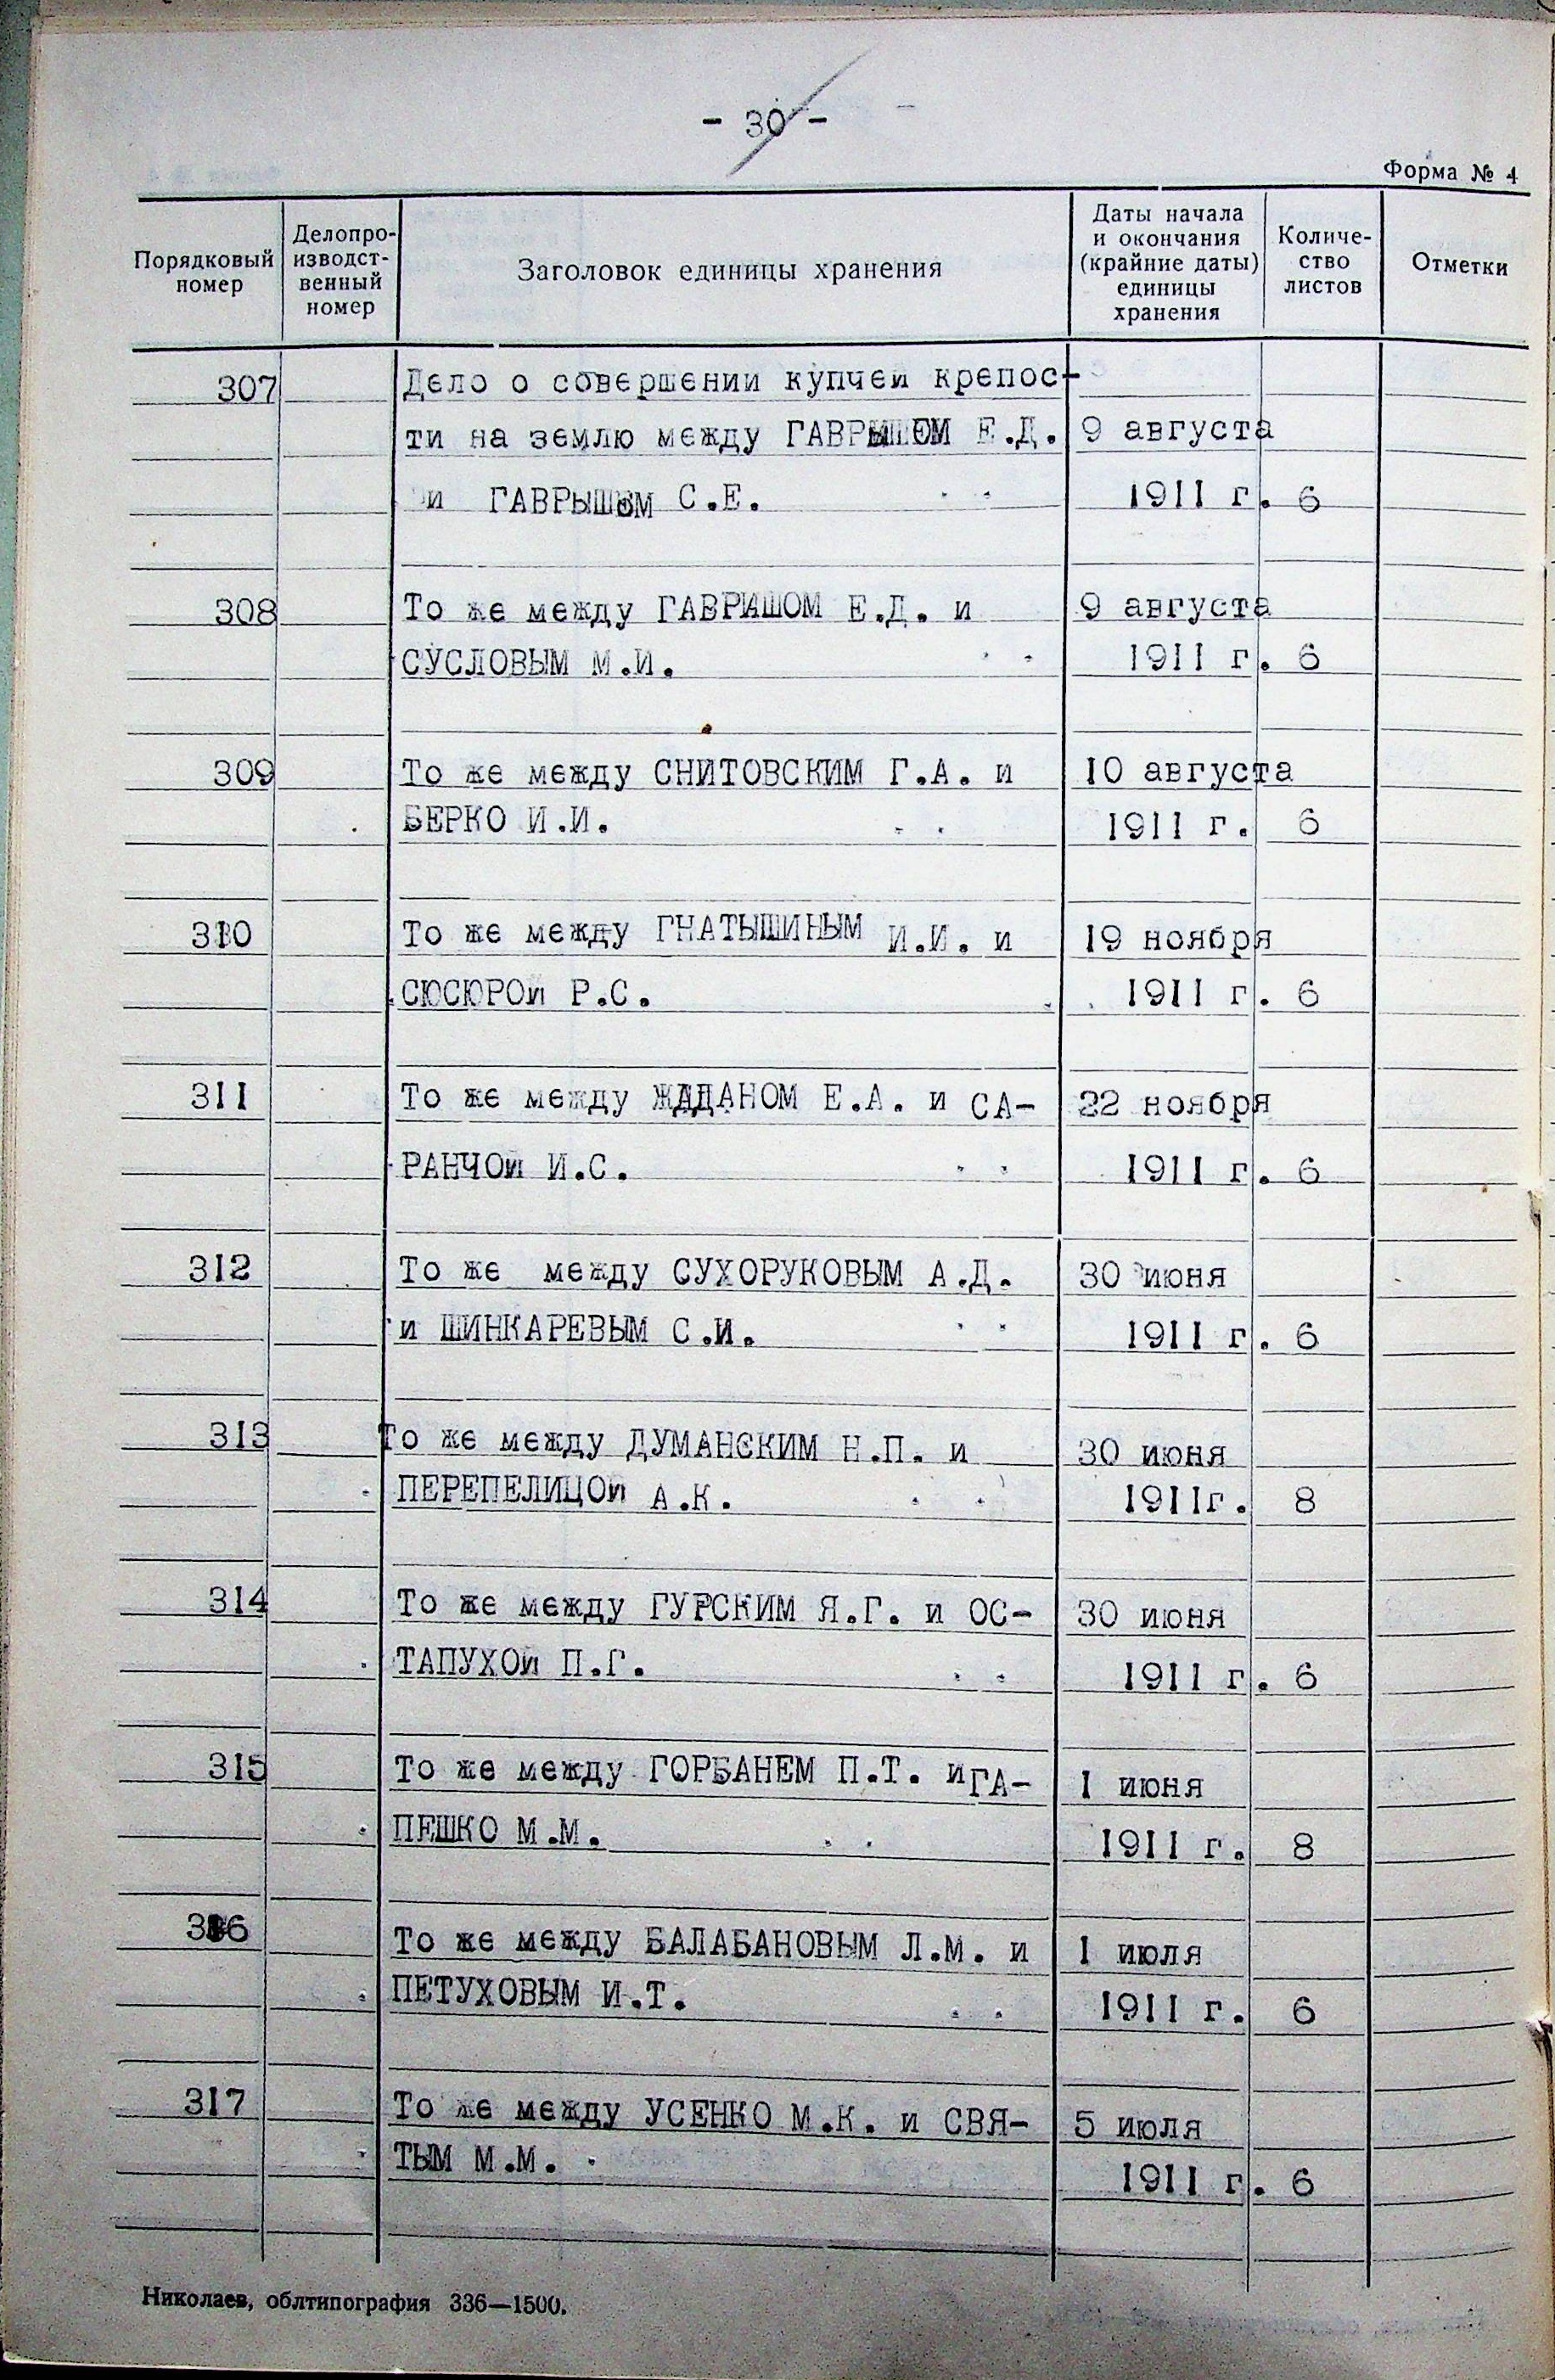 - 30 -
Форма № 4
Порядковый номер
Делопро-
изводст-
венный
номер
Заголовок единицы хранения
Даты начала
и окончания
(крайние даты)
единицы
хранения
Количе-
ство
листов
Отметки
307 Дело о совершении купчей крепос-
ти на землю между ГАВРЫШОМ Е.Д. 9 августа
и ГАВРЫШОМ С.Е. 1911 г. 6
308 То же между ГАВРИШОМ Е.Д. и 9 августа
СУСЛОВЫМ М.И. 1911 г. 6
309 То же между СНИТОВСКИМ Г.А. и 10 августа
БЕРКО И.И. 1911 г. 6
310 То же между ГНАТЫШИНЫМ И.И. и 19 ноября
СЮСЮРОЙ Р.С. 1911 г. 6
311 То же между ЖАДАНОМ Е.А. и СА- 22 ноября
РАНЧОЙ И.С. 1911 г. 6
312 То же между СУХОРУКОВЫМ А.Д. 30 июня
и ШИНКАРЕВЫМ С.И. 1911 г. 6
313 То же между ДУМАНСКИМ Н.П. и 30 июня
ПЕРЕПЕЛИЦОЙ А.К. 1911г. 8
314 То же между ГУРСКИМ Я.Г. и ОС- 30 июня
ТАПУХОЙ П.Г. 1911 г. 6
315 То же между ГОРБАНЕМ П.Т. и ГА- 1 июня
ПЕШКО М.М. 1911 г. 8
316 То же между БАЛАБАНОВЫМ Л.М. и 1 июля
ПЕТУХОВЫМ И.Т. 1911 г. 6
317 То же между УСЕНКО М.К. и СВЯ- 5 июля
ТЫМ М.М. 1911 г. 6
Николаев, облтипография 336—1500.